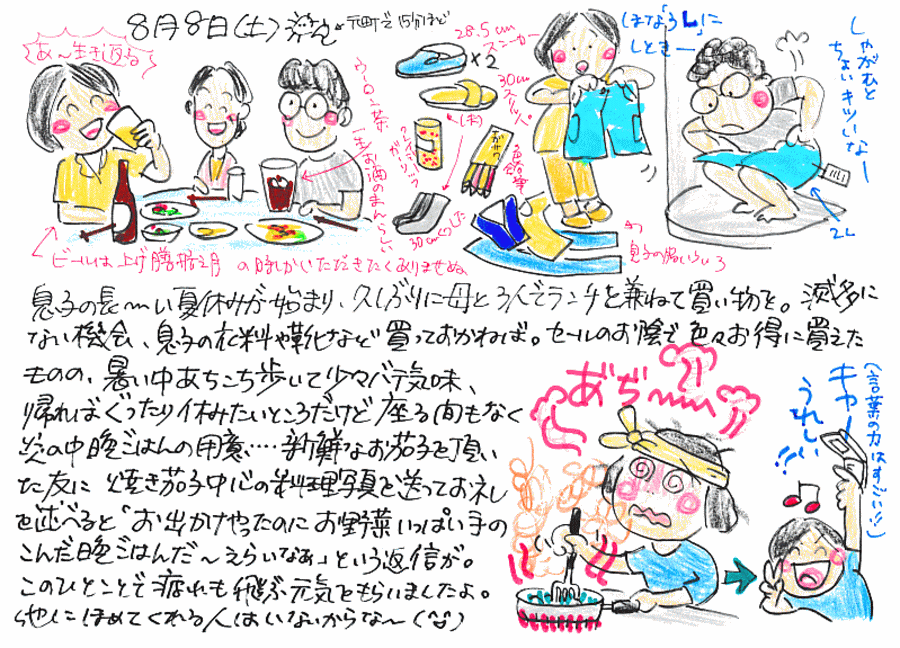 8月8日(土)
元町で15分ほど
あ〜生き返る
ウーロン茶
お酒のまんらしい
ビールは上げ膳据え膳の時しかいただきたくありませぬ
28.5cm
スニーカー
×2
30cm
スリッパ
30cmくつした
色鉛筆
息子の
ほな「3L」に
しときー
しゃがむと
ちょいキツいなー
2L
息子の長〜い夏休みが始まり、久しぶりに母と3人でランチを兼ねて買い物を。滅多に
ない機会、息子の衣料や靴など買っておかねば。セールのお陰で色々お得に買えた
ものの、暑い中あちこち歩いて少々バテ気味、
帰ればぐったり休みたいところだけど座る間もなく
炎の中晩ごはんの用意・・・・新鮮なお茄子を頂い
た友に焼き茄子中心の料理写真を送ってお礼
を述べると「お出かけやったのにお野菜いっぱい手の
こんだ晩ごはんだ〜えらいなぁ」という返信が。
このひとことで疲れも飛ぶ元気をもらいましたよ。
他にほめてくれる人はいないからな〜
あぢ〜
キャー
うれしい!!
(言葉の力はすごい!!)